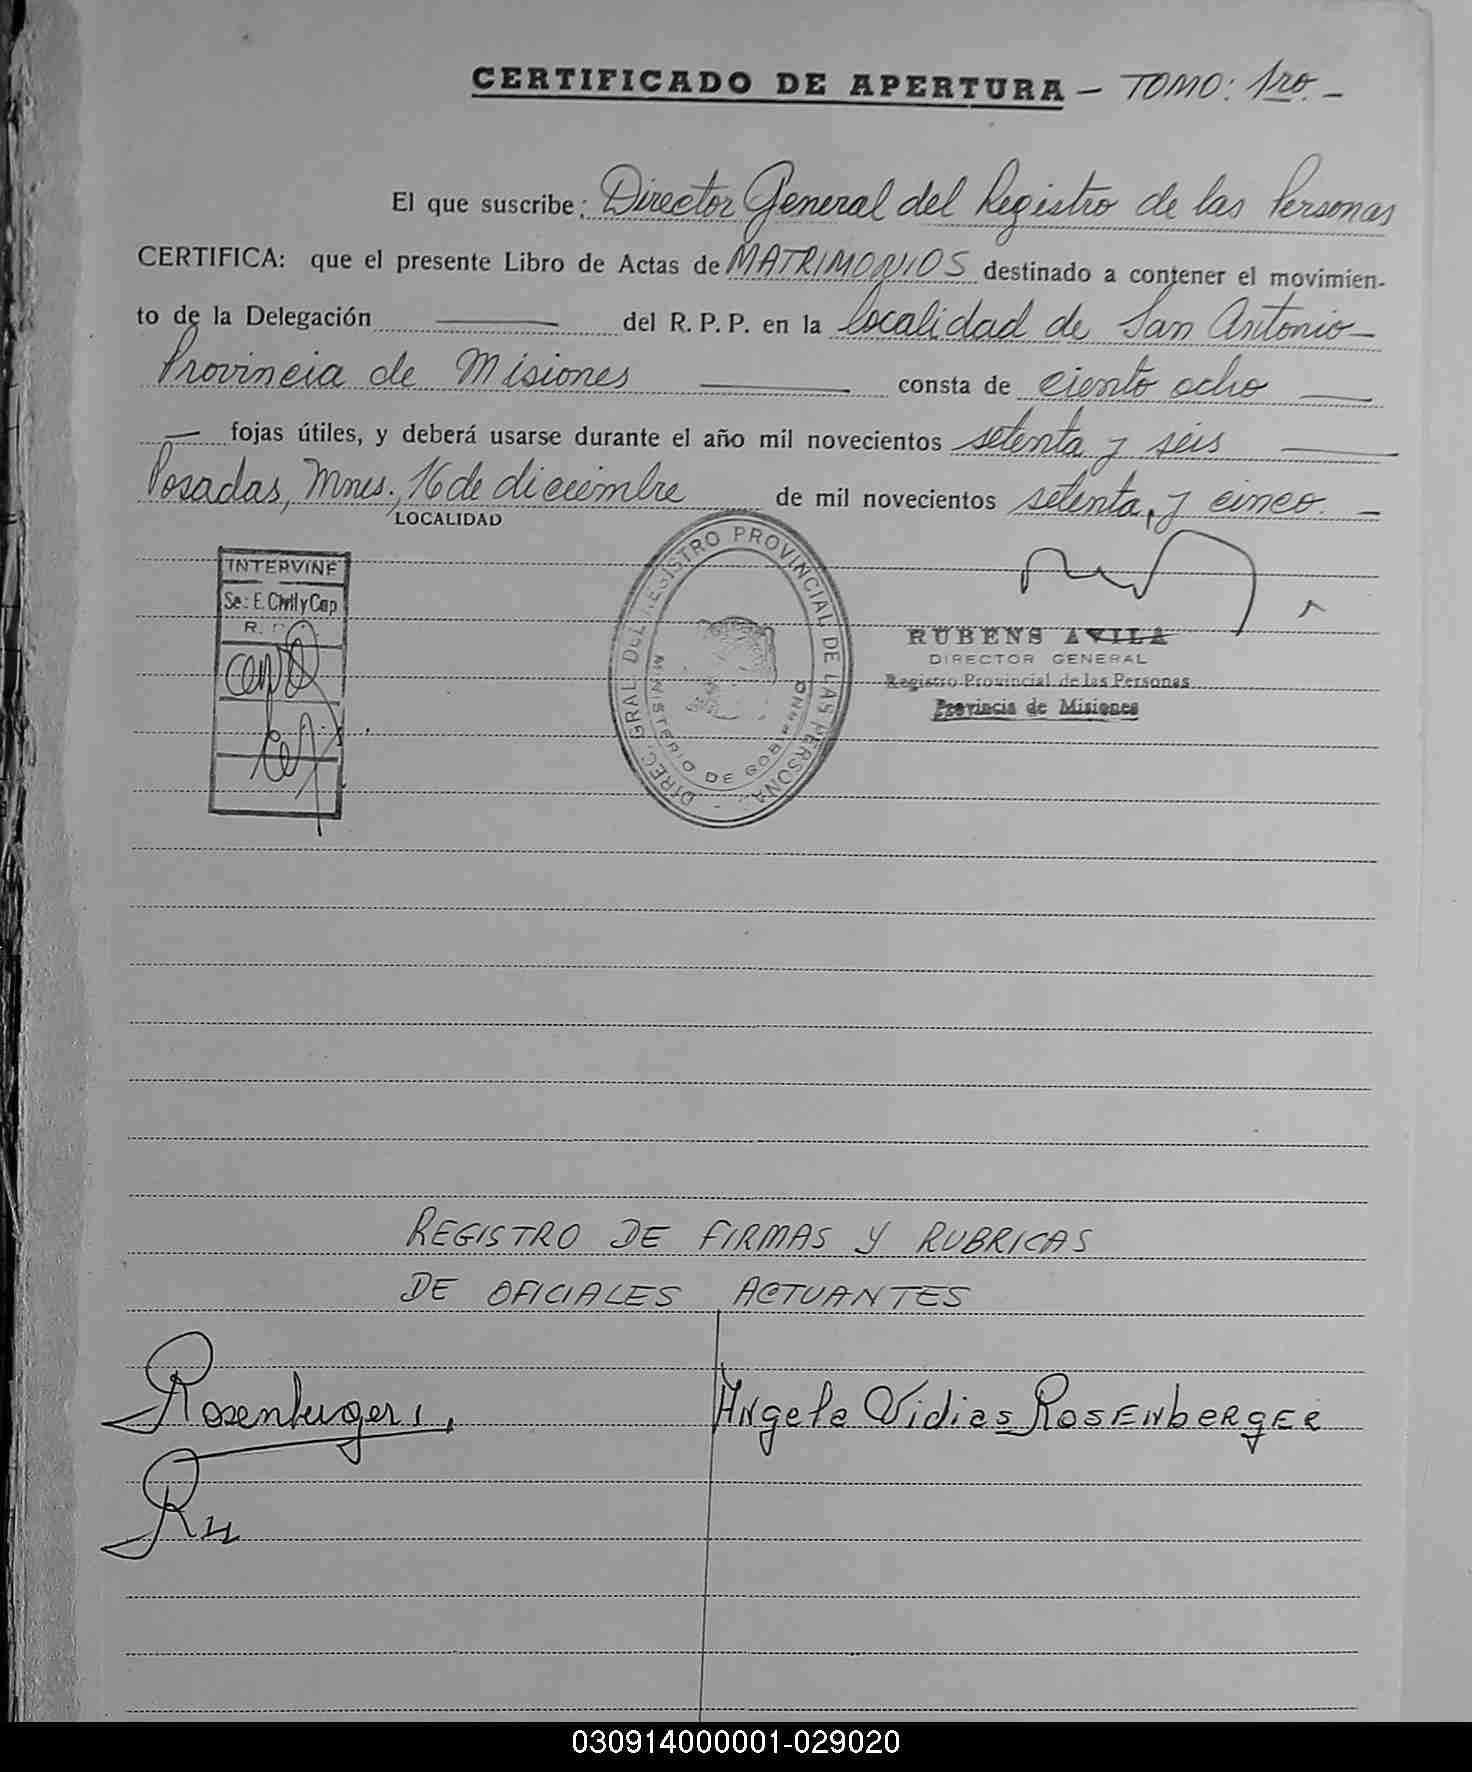 CERTIFICADO DE APERTURA — TOMO: 1ro. —
El que suscribe: Director General del Registro de las Personas
CERTIFICA: que el presente Libro de Actas de MATRIMONIOS destinado a contener el movimien-
to de la Delegación ——— del R. P. P. en la localidad de San Antonio—
Provincia de Misiones ——— consta de ciento ocho —
— fojas útiles, y deberá usarse durante el año mil novecientos setenta y seis ——
Posadas, Mnes., 16 de diciembre de mil novecientos setenta y cinco. —
LOCALIDAD
INTERVINE
Se: E. Civil y Cap
R.
DIREC. GRAL. DEL REGISTRO PROVINCIAL DE LAS PERSONAS
MINISTERIO DE GOBIERNO
RUBENS AVILA
DIRECTOR GENERAL
Registro Provincial de las Personas
Provincia de Misiones
REGISTRO DE FIRMAS Y RUBRICAS
DE OFICIALES ACTUANTES
Rosenberger Angela Vidies Rosenberger
030914000001-029020